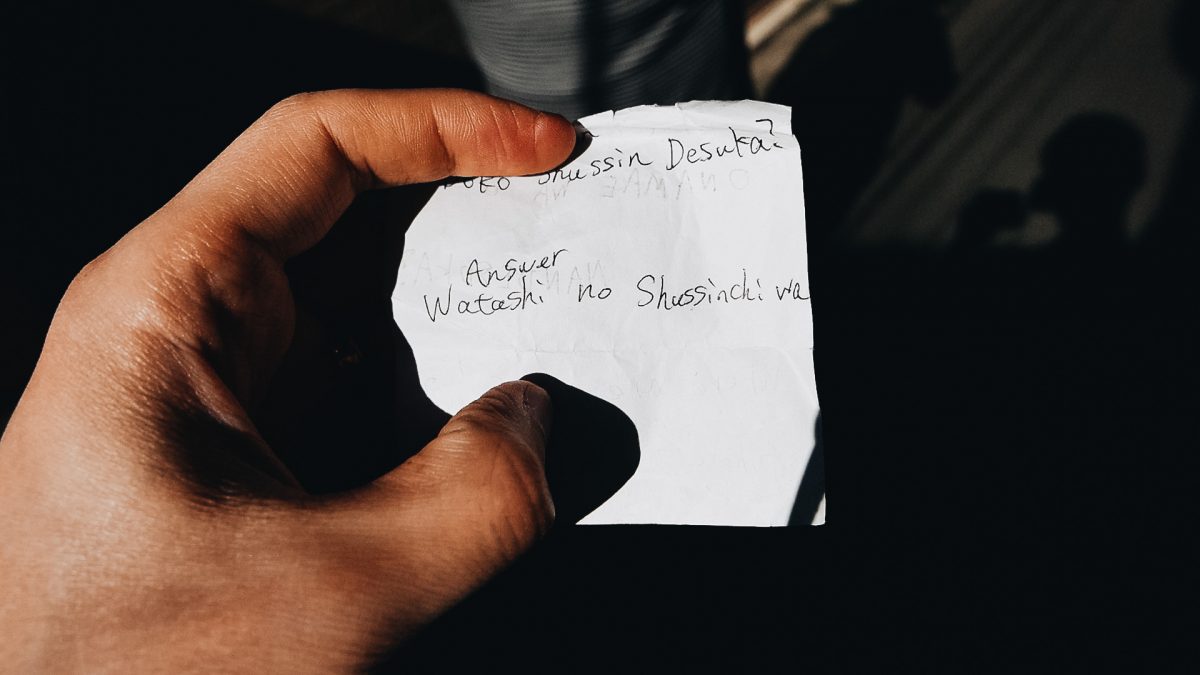 Doko Shussin Desuka?
Answer
Watashi no Shussinchi wa